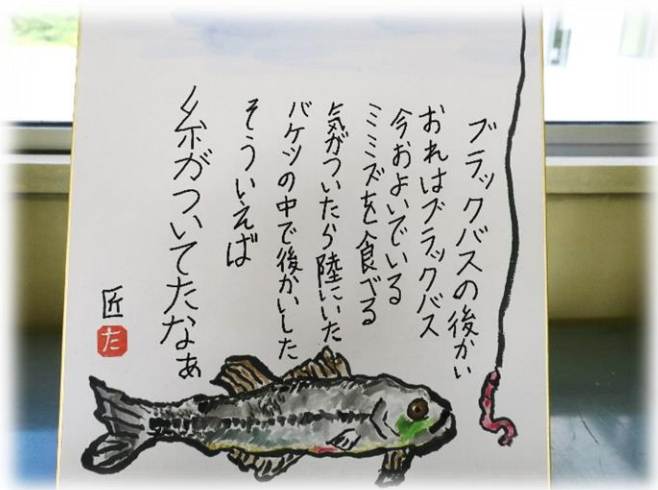 ブラックバスの後かい
おれはブラックバス
今およいでいる
ミミズを食べる
気がついたら陸にいた
バケツの中で後かいした
そういえば
糸がついてたなぁ
匠
た